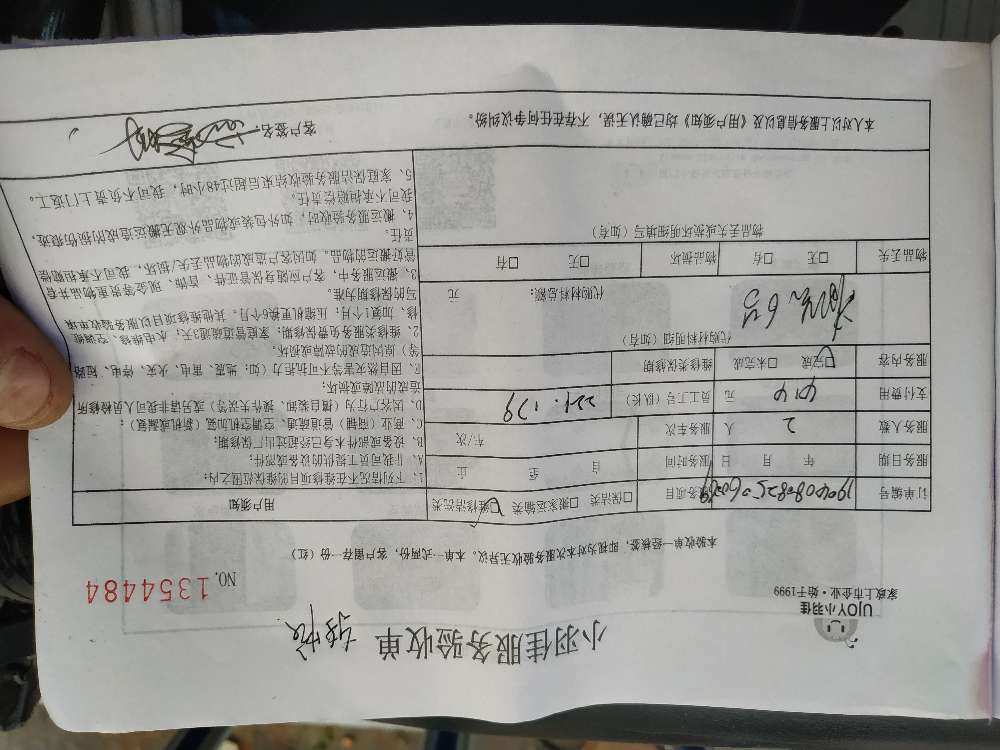 小羽佳服务验收单
UJOY小羽佳
家政上市企业·始于1999
NO. 1354484
本验收单一经核签，即视为对本次服务验收无异议。本单一式两份，客户留存一份（红）
订单编号 服务项目 □保洁类 □搬家运输类 □维修清洗类 用户须知
服务日期 年 月 日 服务时间 自 至 止
服务人数 2 人 服务车次 车/次
支付费用 元 员工工号（队长） 221.179
服务内容 □完成 □未完成 维修类保修期
代购材料明细（如有）
代购材料总额： 元
物品丢失 □无 □有 物品损坏 □无 □有
物品丢失或损坏明细填写（如有）
1、下列情况不在维修项目的维保范围之内：
A、非我司员工提供的设备或部件；
B、设备或部件本身已经超过出厂保修期；
C、商业（商铺）管道疏通、空调空机加氟（新机或漏氟）；
D、因客户行为（擅自装卸、操作失误等）或另请非我司人员检修所
造成的故障或损坏；
F、因自然灾害等不可抗拒力（如：地震、雷电、火灾、停电、短路
等）原因造成的故障或损坏。
2、维修类服务免费保修期：家庭管道疏通3天；水电维修、空调维
修、加氟1个月；压缩机更换6个月。其他维修项目以服务验收单
写的保修期为准。
3、搬运服务中，客户应随身保管证件、首饰、现金等贵重物品并看
管好搬运的物品。如因客户造成的物品丢失/损坏，我司不承担赔偿
责任。
4、搬运服务验收时，如外包装或物品外观无搬运造成的损伤痕迹，
我司不承担赔偿责任。
5、家庭保洁服务验收结束后超过48小时，我司不负责上门返工。
本人对以上服务信息以及《用户须知》均已确认无误，不存在任何争议纠纷。
客户签名